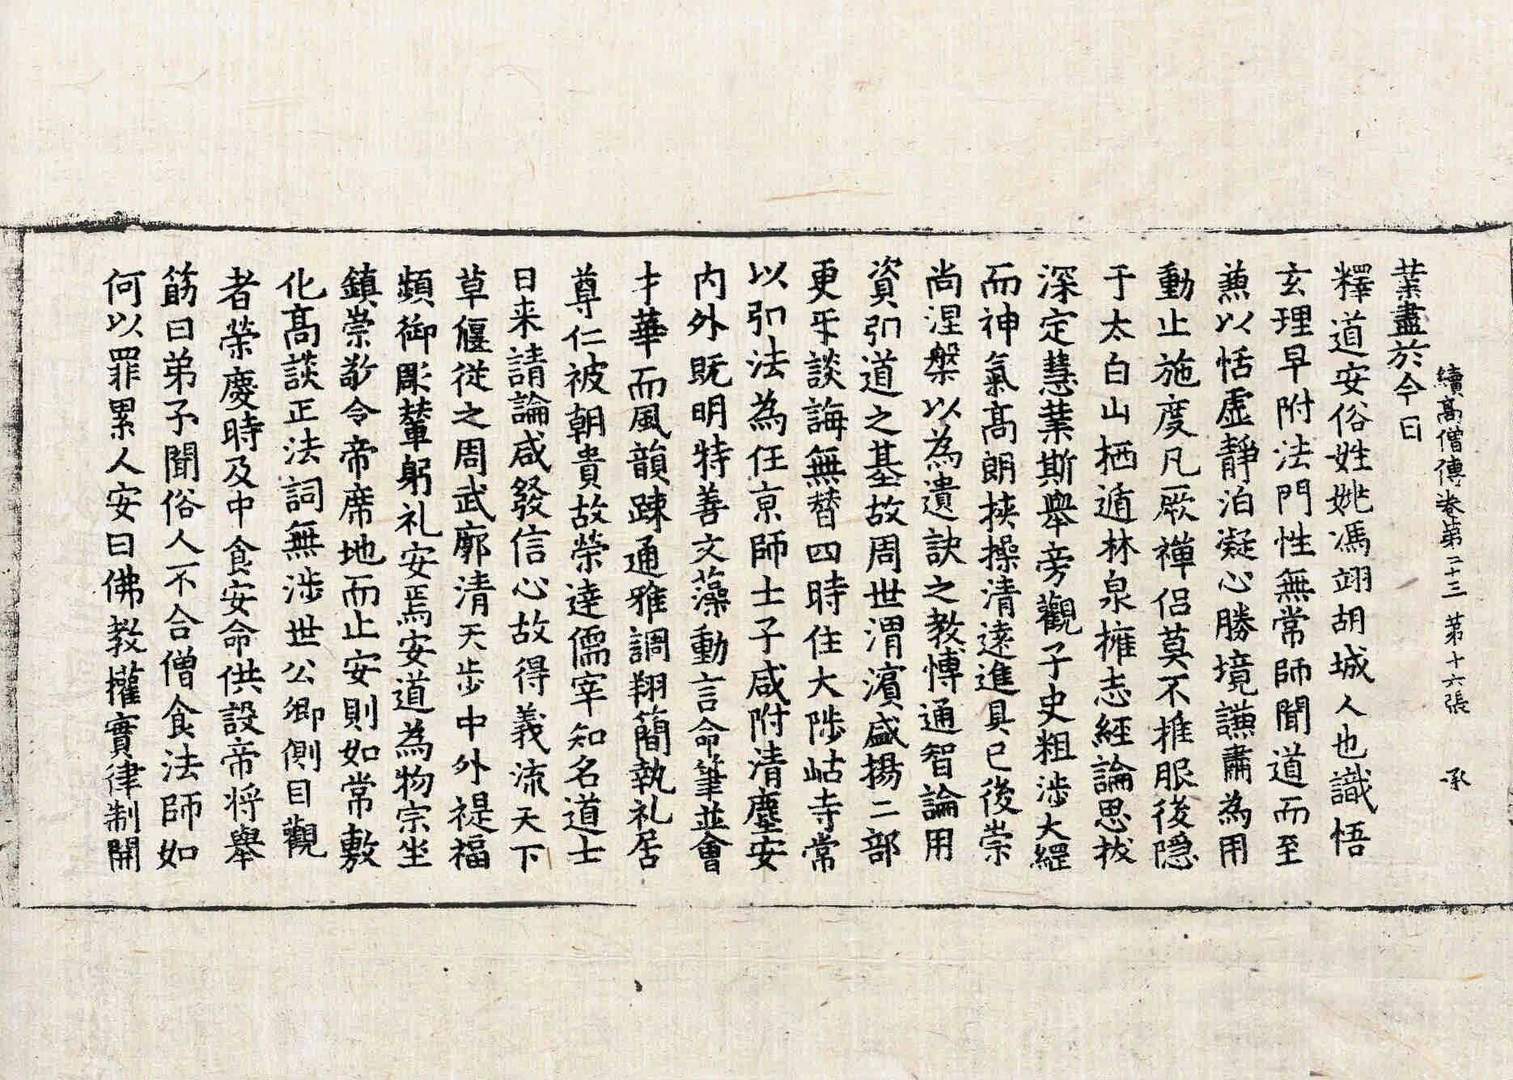 續高僧傳卷第二十三 第十六張 承
業盡於今日
釋道安俗姓姚馮翊胡城人也識悟
玄理早附法門性無常師聞道而至
兼以恬虛靜泊凝心勝境謙肅為用
動止施度凡厥禪侶莫不推服後隱
于太白山栖遁林泉擁志經論思拔
深定慧業斯舉旁觀子史粗涉大經
而神氣高朗挾操清遠進具已後崇
尚涅槃以為遺訣之教博通智論用
資引道之基故周世渭濱盛揚二部
更互談誨無替四時住大陟岵寺常
以引法為任京師士子咸附清塵安
內外既明特善文藻動言命筆並會
才華而風韻踈通雅調翔簡執礼居
尊仁被朝貴故榮達儒宰知名道士
日来請論咸發信心故得義流天下
草偃從之周武廓清天步中外禔福
頻御彫輦躬礼安焉安道為物宗坐
鎮崇敬令帝席地而止安則如常敷
化高談正法詞無涉世公卿側目觀
者榮慶時及中食安命供設帝將舉
筯曰弟子聞俗人不合僧食法師如
何以罪累人安曰佛教權實律制開